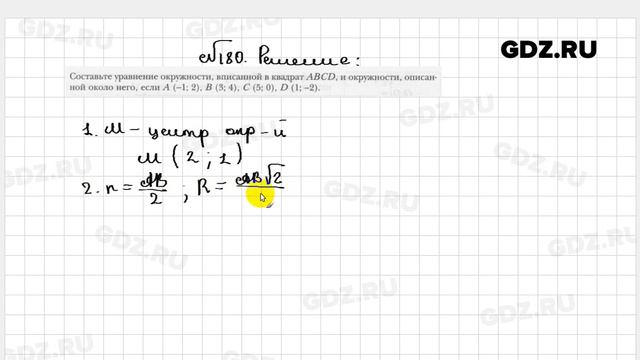 №180. Решение:
GDZ.RU
Составьте уравнение окружности, вписанной в квадрат ABCD, и окружности, описан-
ной около него, если A (–1; 2), B (3; 4), C (5; 0), D (1; –2).
1. M - центр окр-й
M (2; 1)
2. r = AB/2 ; R = AB√2
GDZ.RU
GDZ.RU
GDZ.RU
GDZ.RU
GDZ.RU
GDZ.RU
GDZ.RU
GDZ.RU